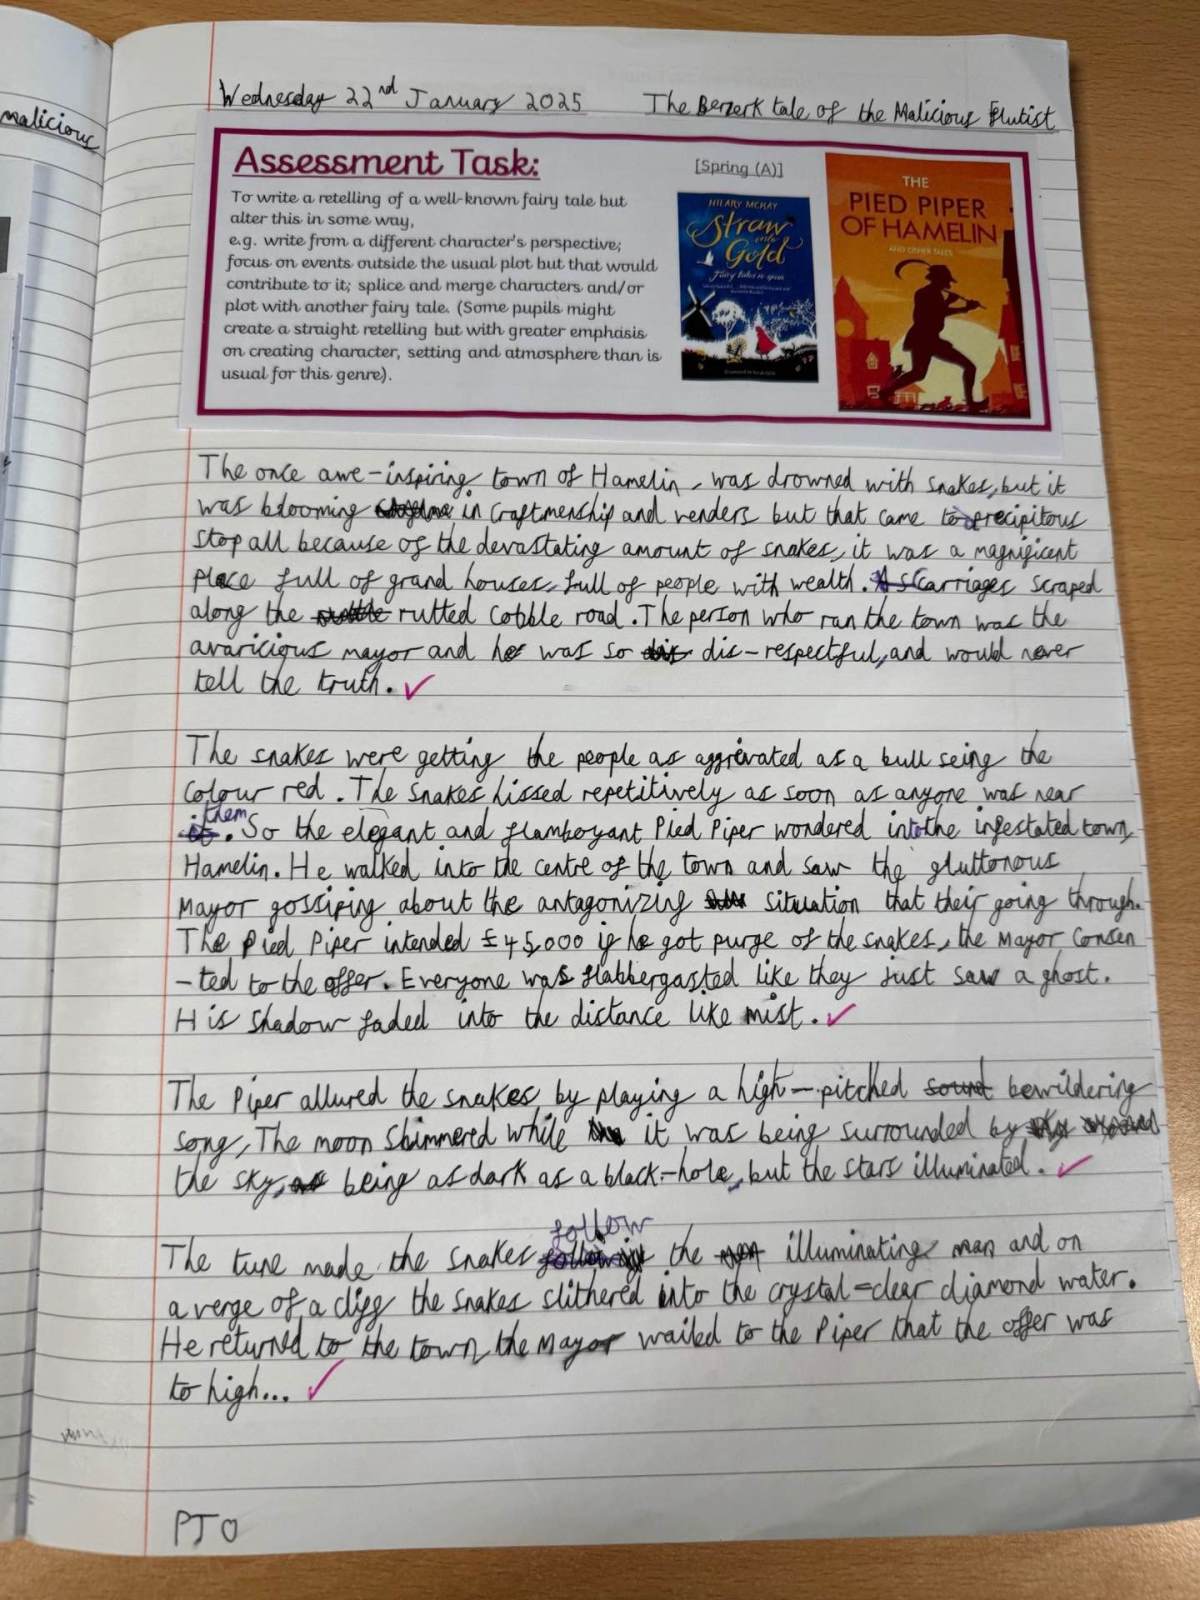 malicious
Wednesday 22nd January 2025 The Berzerk tale of the Malicious Flutist
Assessment Task:
[Spring (A)]
To write a retelling of a well-known fairy tale but
alter this in some way,
e.g. write from a different character's perspective;
focus on events outside the usual plot but that would
contribute to it; splice and merge characters and/or
plot with another fairy tale. (Some pupils might
create a straight retelling but with greater emphasis
on creating character, setting and atmosphere than is
usual for this genre).
HILARY MCKAY
Straw
into
Gold
Fairy tales re-spun
THE
PIED PIPER
OF HAMELIN
AND OTHER TALES
The once awe-inspiring town of Hamelin, was drowned with snakes, but it
was blooming in craftmenship and venders but that came to a precipitous
stop all because of the devastating amount of snakes, it was a magnificent
place full of grand houses, full of people with wealth. Carriages scraped
along the rutted cobble road. The person who ran the town was the
avaricious mayor and he was so dis-respectful, and would never
tell the truth.
The snakes were getting the people as aggrevated as a bull seing the
colour red. The snakes hissed repetitively as soon as anyone was near
them. So the elegant and flamboyant Pied Piper wondered into the infestated town,
Hamelin. He walked into the centre of the town and saw the gluttonous
Mayor gossiping about the antagonizing situation that their going through.
The Pied Piper intended £45,000 if he got purge of the snakes, the Mayor Consen
-ted to the offer. Everyone was flabbergasted like they just saw a ghost.
His shadow faded into the distance like mist.
The Piper allured the snakes by playing a high-pitched bewildering
song, The moon shimmered while it was being surrounded by
the sky, being as dark as a black-hole, but the stars illuminated.
The tune made the snakes follow the illuminating man and on
a verge of a cliff the snakes slithered into the crystal-clear diamond water.
He returned to the town, the Mayor wailed to the Piper that the offer was
to high...
PTO